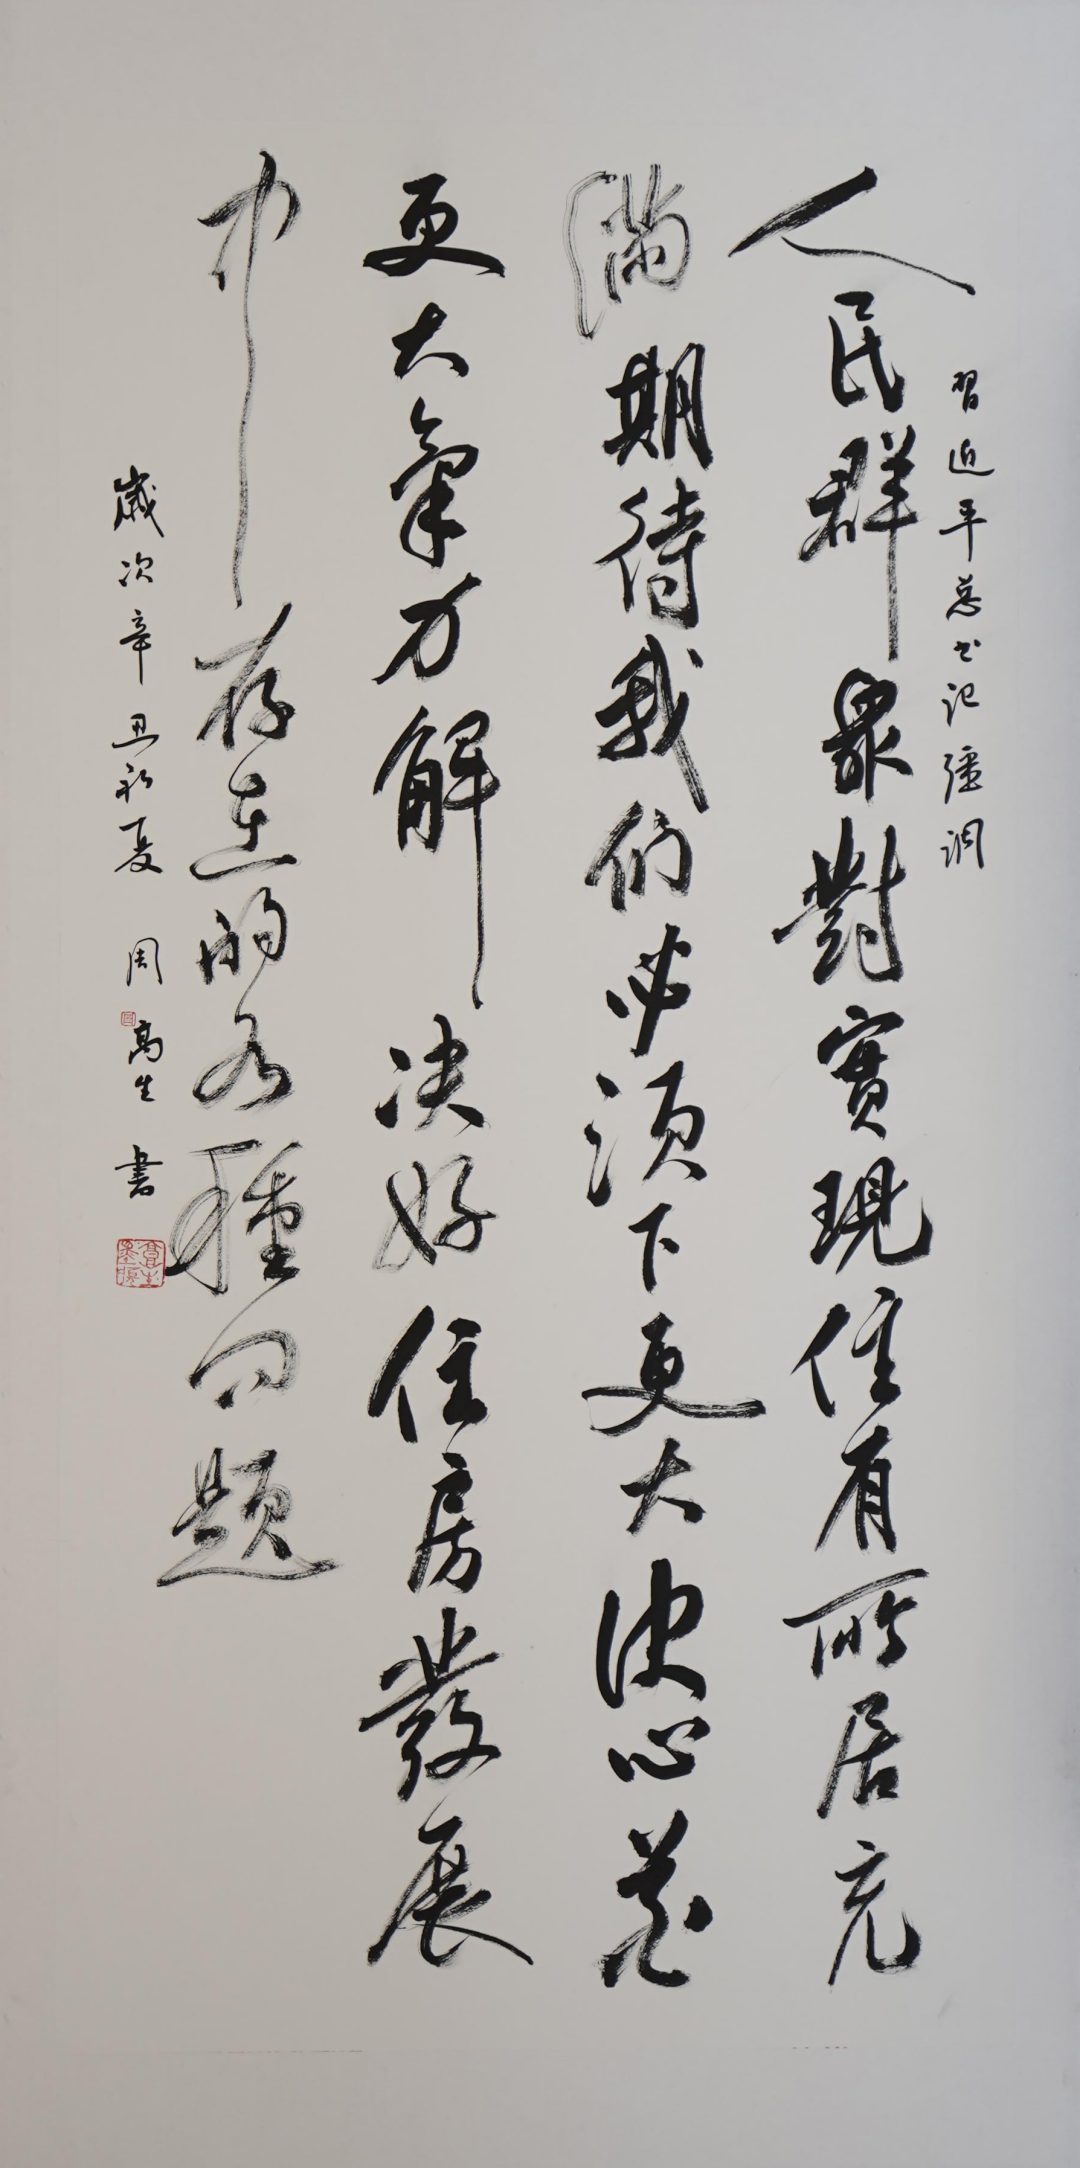 習近平总书记强调
人民群衆對實現住有所居充
满期待我们必须下更大决心花
更大氣力解决好住房發展
中存在的各種问题
歲次辛丑初夏 周高生書